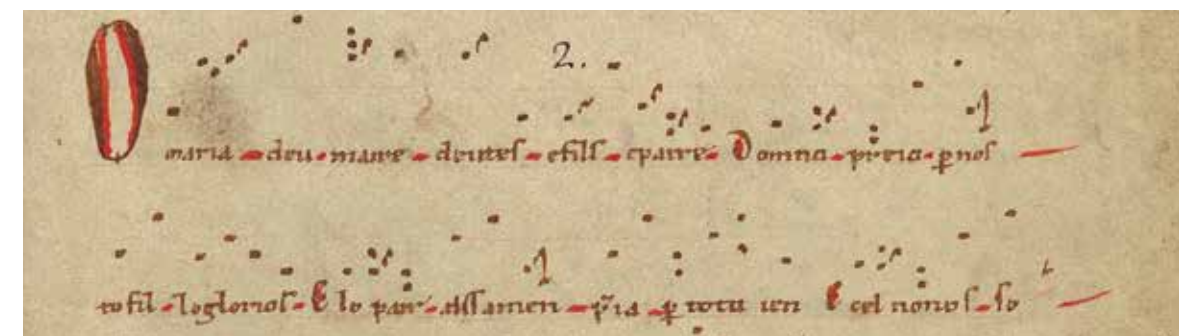 2.
O maria deu maire deutes efills epaire Domna preia p nos
to fil lo glorios E lo pair aissamen pria p tota ien E cel nonos so